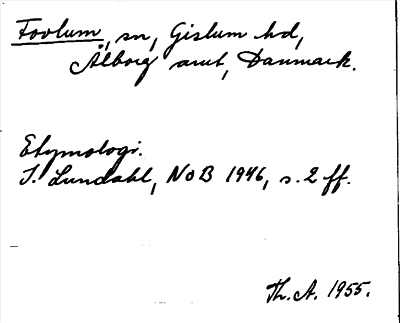 Foolum, sn, Gislum hd,
Ålborg amt, Danmark.
Etymologi.
I. Lundahl, NoB 1946, s. 2 ff.
Th. A. 1955.